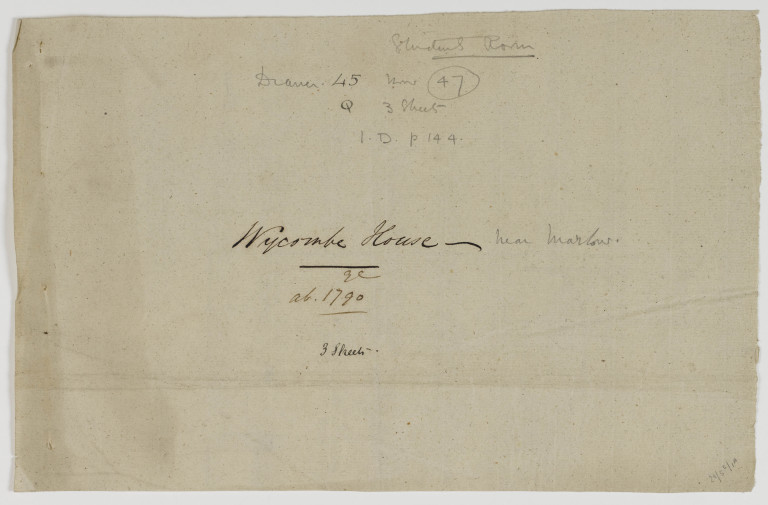 Students Room
Drawer 45 now 47
Q 3 Sheets
1. D. p 144.
Wycombe House — near Marlow.
ab. 1790
3 Sheets.